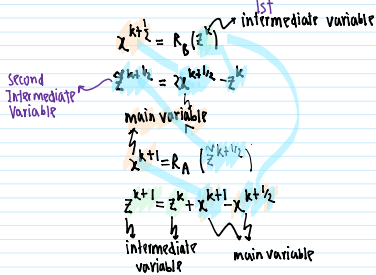 1st
intermediate variable
x^{k+1/2} = R_B(z^k)
z̃^{k+1/2} = 2x^{k+1/2} - z^k
Second
Intermediate
Variable
main variable
x^{k+1} = R_A (z̃^{k+1/2})
z^{k+1} = z^k + x^{k+1} - x^{k+1/2}
intermediate
variable
main variable